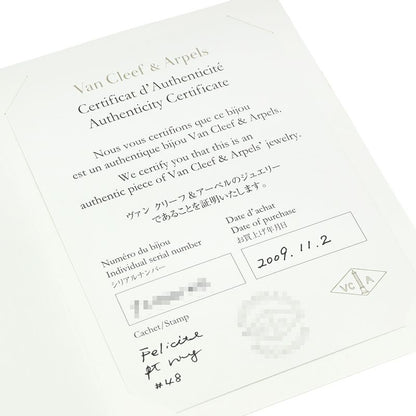 Van Cleef & Arpels
Certificat d'Authenticité
Authenticity Certificate
Nous vous certifions que ce bijou
est un authentique bijou Van Cleef & Arpels.
We certify you that this is an
authentic piece of Van Cleef & Arpels' jewelry.
ヴァン クリーフ&アーペルのジュエリー
であることを証明いたします。
Numéro du bijou
Individual serial number
シリアルナンバー
Date d'achat
Date of purchase
お買上げ年月日
2009.11.2
VC A
Cachet/Stamp
Felicite
pt ring
#48